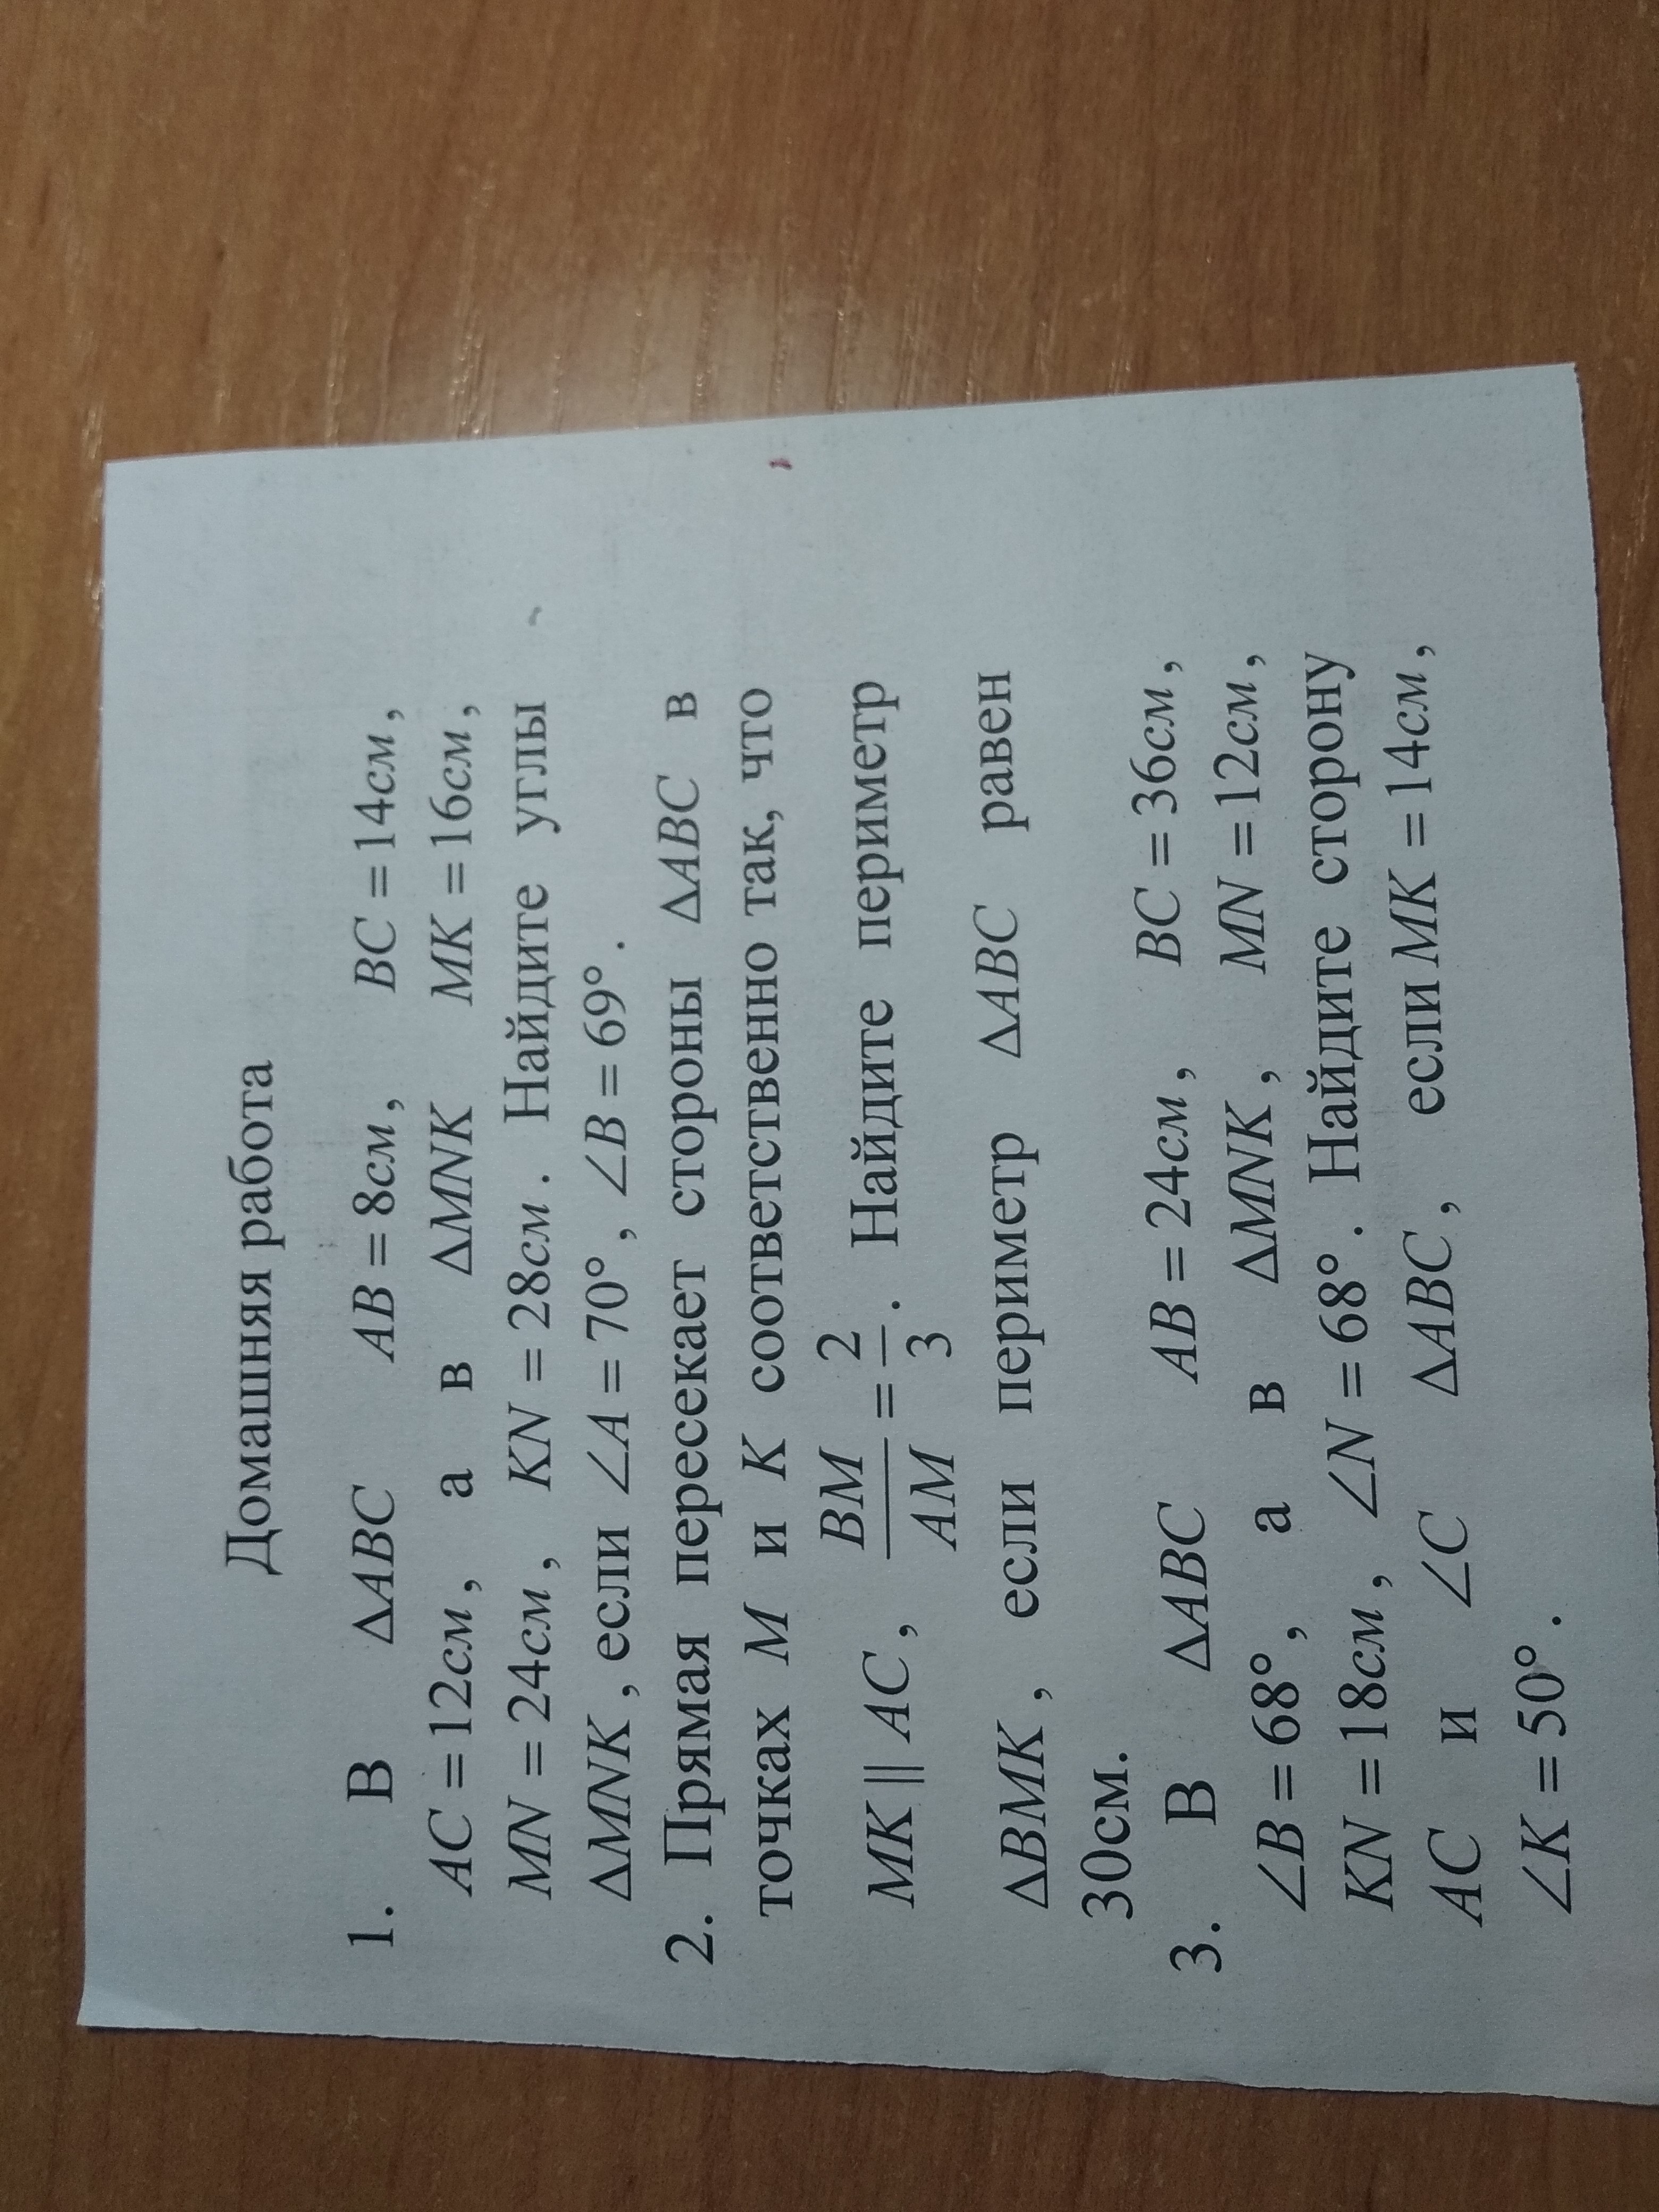 Домашняя работа
1. В ΔABC AB = 8см, BC = 14см,
AC = 12см, а в ΔMNK MK = 16см,
MN = 24см, KN = 28см. Найдите углы
ΔMNK, если ∠A = 70°, ∠B = 69°.
2. Прямая пересекает стороны ΔABC в
точках M и K соответственно так, что
MK || AC, BM/AM = 2/3. Найдите периметр
ΔBMK, если периметр ΔABC равен
30см.
3. В ΔABC AB = 24см, BC = 36см,
∠B = 68°, а в ΔMNK, MN = 12см,
KN = 18см, ∠N = 68°. Найдите сторону
AC и ∠C ΔABC, если MK = 14см,
∠K = 50°.